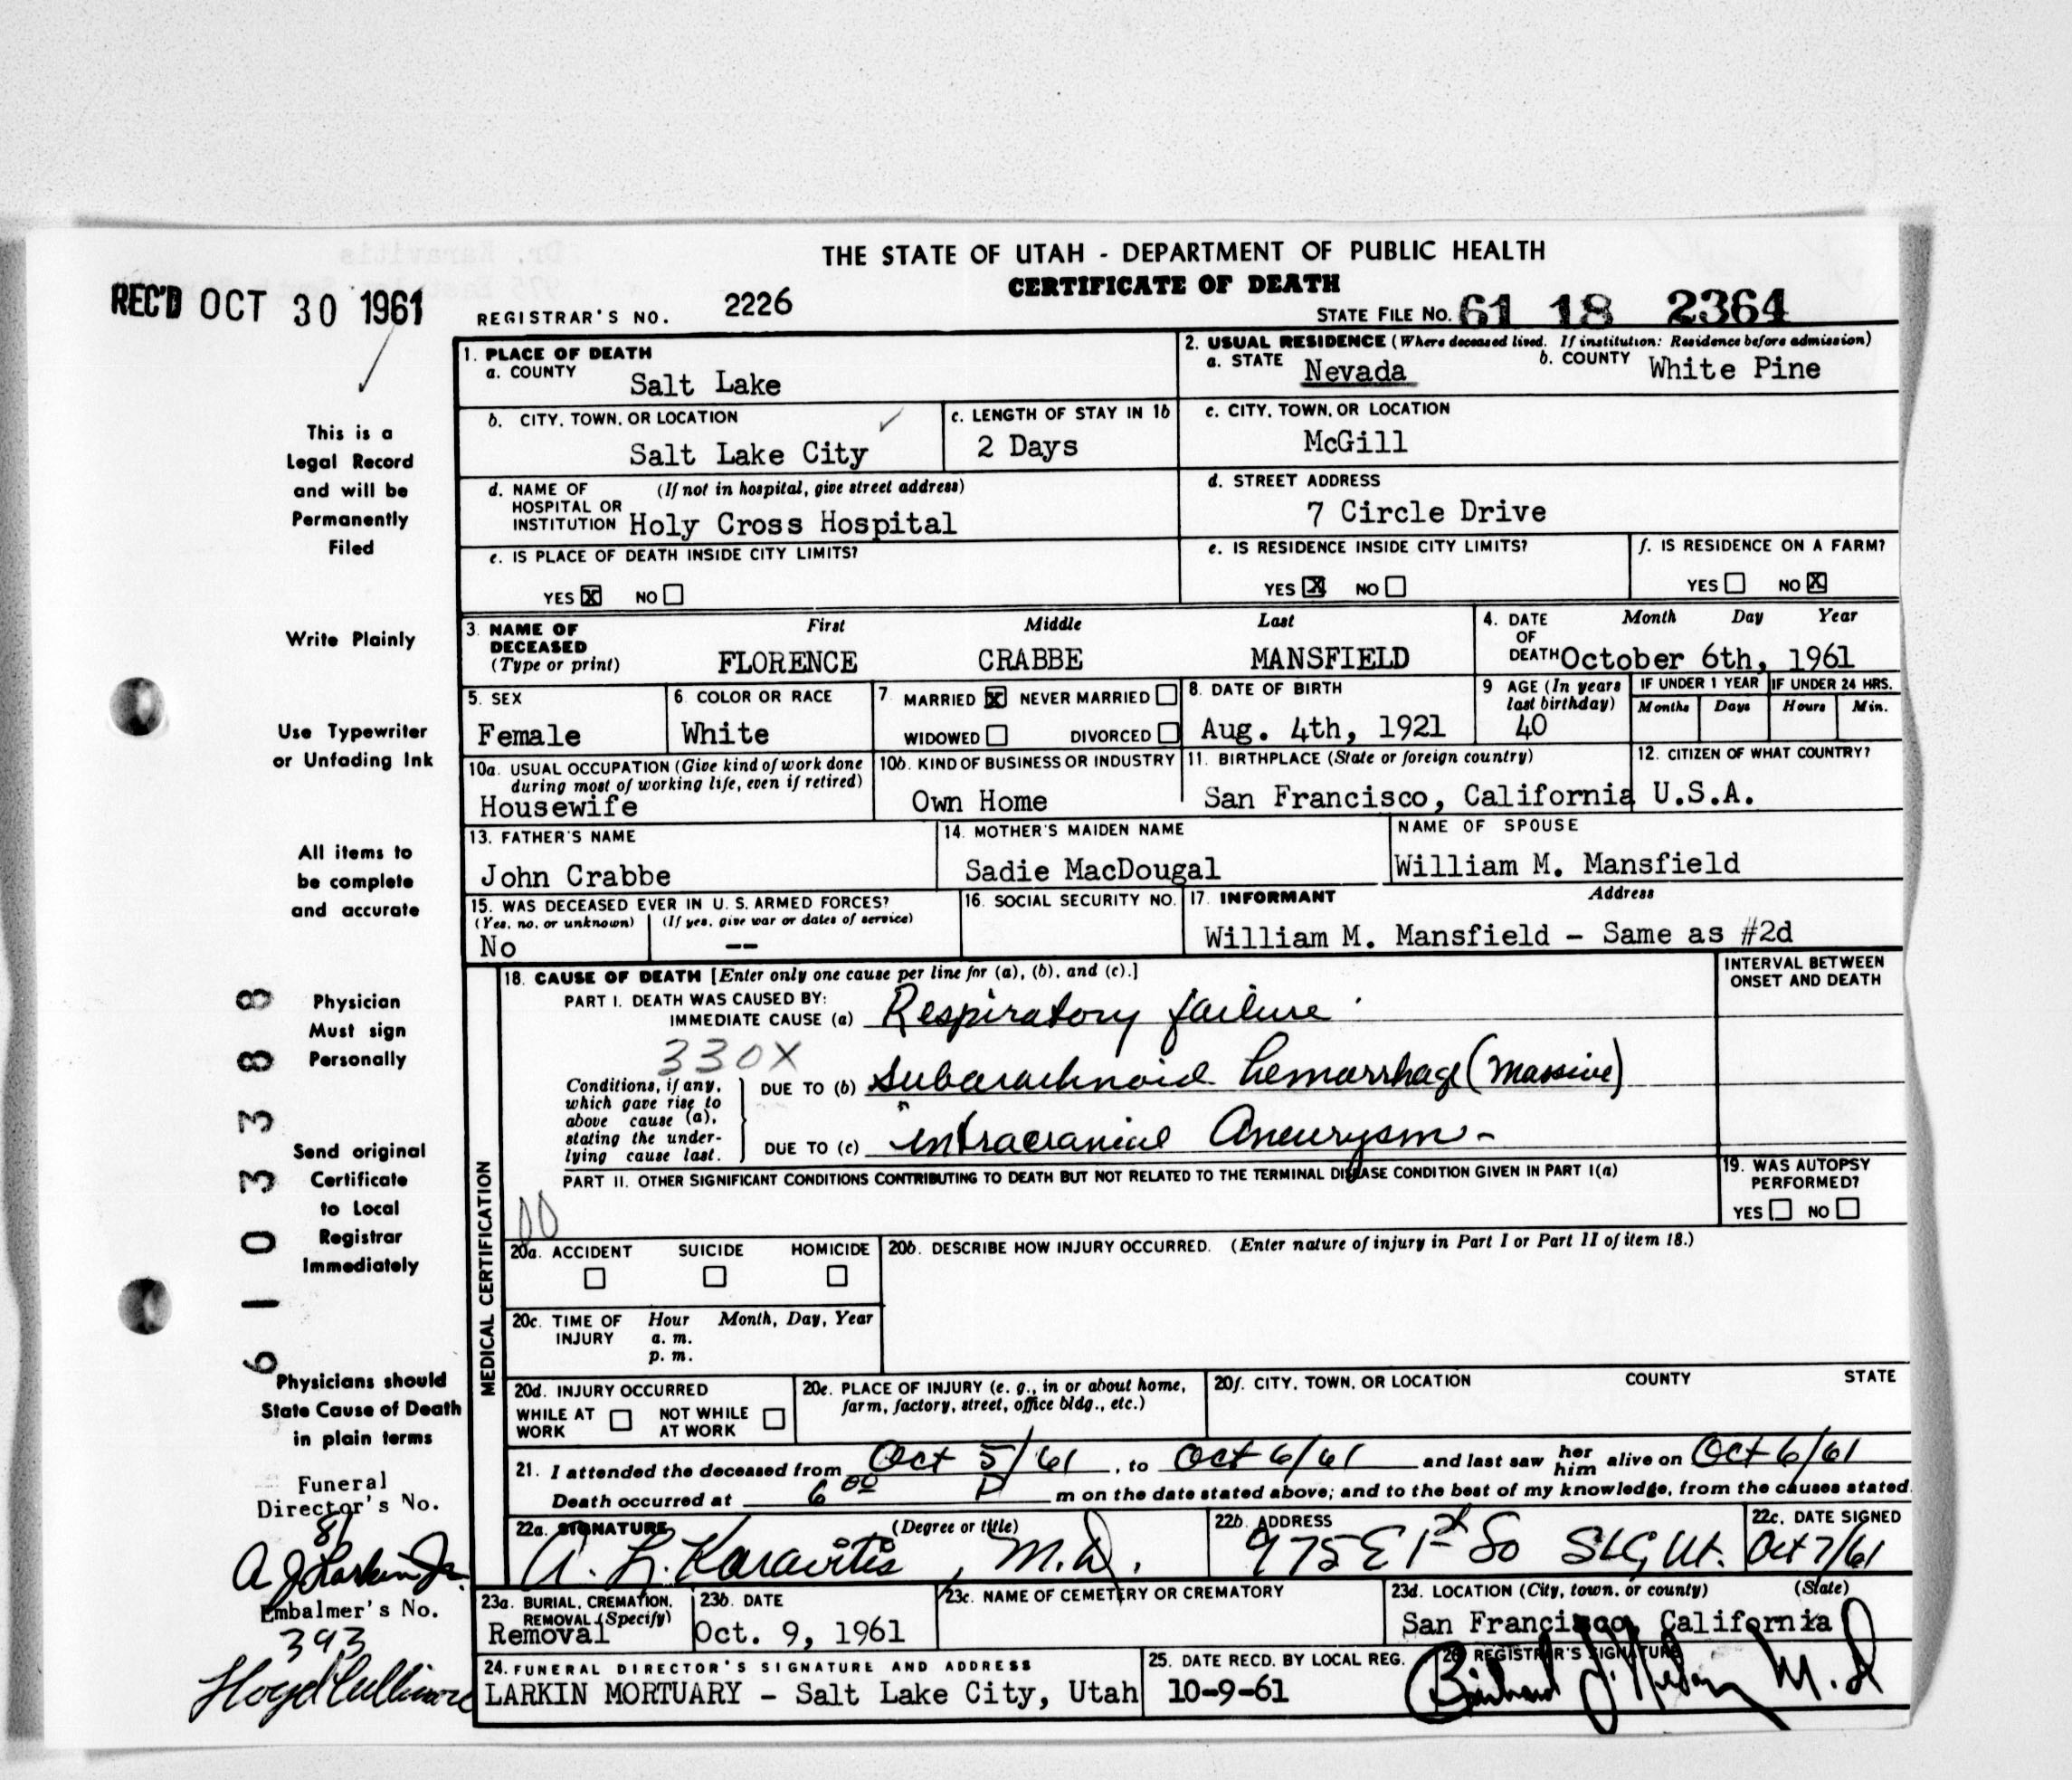 THE STATE OF UTAH - DEPARTMENT OF PUBLIC HEALTH
CERTIFICATE OF DEATH
REC'D OCT 30 1961
REGISTRAR'S NO. 2226
STATE FILE NO. 61 18 2364
This is a
Legal Record
and will be
Permanently
Filed
Write Plainly
Use Typewriter
or Unfading Ink
All items to
be complete
and accurate
Physician
Must sign
Personally
Send original
Certificate
to Local
Registrar
Immediately
Physicians should
State Cause of Death
in plain terms
Funeral
Director's No.
81
A J Larkin Jr.
Embalmer's No.
393
Floyd Cullimore
61033388
1. PLACE OF DEATH
a. COUNTY
Salt Lake
2. USUAL RESIDENCE (Where deceased lived. If institution: Residence before admission)
a. STATE Nevada b. COUNTY White Pine
b. CITY, TOWN, OR LOCATION
Salt Lake City
c. LENGTH OF STAY IN 1b
2 Days
c. CITY, TOWN, OR LOCATION
McGill
d. NAME OF (If not in hospital, give street address)
HOSPITAL OR
INSTITUTION Holy Cross Hospital
d. STREET ADDRESS
7 Circle Drive
e. IS PLACE OF DEATH INSIDE CITY LIMITS?
YES X NO
e. IS RESIDENCE INSIDE CITY LIMITS?
YES X NO
f. IS RESIDENCE ON A FARM?
YES NO X
3. NAME OF
DECEASED
(Type or print)
First Middle Last
FLORENCE CRABBE MANSFIELD
4. DATE Month Day Year
OF
DEATH October 6th, 1961
5. SEX
Female
6. COLOR OR RACE
White
7. MARRIED X NEVER MARRIED
WIDOWED DIVORCED
8. DATE OF BIRTH
Aug. 4th, 1921
9 AGE (In years
last birthday)
40
IF UNDER 1 YEAR IF UNDER 24 HRS.
Months Days Hours Min.
10a. USUAL OCCUPATION (Give kind of work done
during most of working life, even if retired)
Housewife
10b. KIND OF BUSINESS OR INDUSTRY
Own Home
11. BIRTHPLACE (State or foreign country)
San Francisco, California
12. CITIZEN OF WHAT COUNTRY?
U.S.A.
13. FATHER'S NAME
John Crabbe
14. MOTHER'S MAIDEN NAME
Sadie MacDougal
NAME OF SPOUSE
William M. Mansfield
15. WAS DECEASED EVER IN U. S. ARMED FORCES?
(Yes, no, or unknown) (If yes, give war or dates of service)
No --
16. SOCIAL SECURITY NO.
17. INFORMANT Address
William M. Mansfield - Same as #2d
MEDICAL CERTIFICATION
18. CAUSE OF DEATH [Enter only one cause per line for (a), (b), and (c).]
INTERVAL BETWEEN
ONSET AND DEATH
PART I. DEATH WAS CAUSED BY:
IMMEDIATE CAUSE (a) Respiratory failure
330X
Conditions, if any,
which gave rise to
above cause (a),
stating the under-
lying cause last.
DUE TO (b) Subarachnoid hemorrhage (Massive)
DUE TO (c) intracranial Aneurysm -
PART II. OTHER SIGNIFICANT CONDITIONS CONTRIBUTING TO DEATH BUT NOT RELATED TO THE TERMINAL DISEASE CONDITION GIVEN IN PART I(a)
00
19. WAS AUTOPSY
PERFORMED?
YES NO
20a. ACCIDENT SUICIDE HOMICIDE
20b. DESCRIBE HOW INJURY OCCURRED. (Enter nature of injury in Part I or Part II of item 18.)
20c. TIME OF Hour Month, Day, Year
INJURY a. m.
p. m.
20d. INJURY OCCURRED
WHILE AT NOT WHILE
WORK AT WORK
20e. PLACE OF INJURY (e. g., in or about home,
farm, factory, street, office bldg., etc.)
20f. CITY, TOWN, OR LOCATION COUNTY STATE
21. I attended the deceased from Oct 5/61, to Oct 6/61 and last saw her him alive on Oct 6/61
Death occurred at 6 00 P m on the date stated above; and to the best of my knowledge, from the causes stated.
22a. SIGNATURE (Degree or title)
A. L. Karavitis, M.D.
22b. ADDRESS
975 E 1st So SLC, Ut.
22c. DATE SIGNED
Oct 7/61
23a. BURIAL, CREMATION,
REMOVAL (Specify)
Removal
23b. DATE
Oct. 9, 1961
23c. NAME OF CEMETERY OR CREMATORY
23d. LOCATION (City, town, or county) (State)
San Francisco, California
24. FUNERAL DIRECTOR'S SIGNATURE AND ADDRESS
LARKIN MORTUARY - Salt Lake City, Utah
25. DATE RECD. BY LOCAL REG.
10-9-61
26 REGISTRAR'S SIGNATURE
M.D